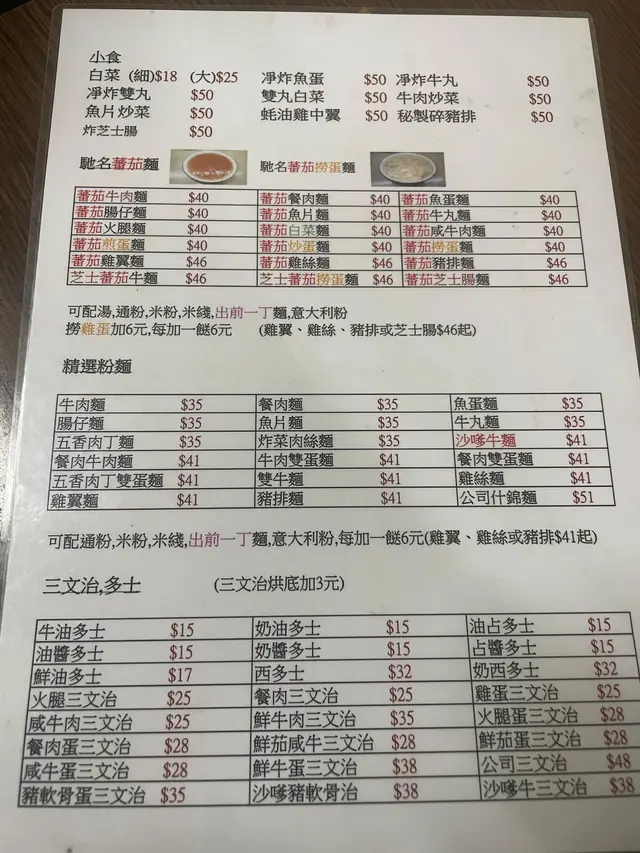 小食
白菜 (細)$18 (大)$25 淨炸魚蛋 $50 淨炸牛丸 $50
淨炸雙丸 $50 雙丸白菜 $50 牛肉炒菜 $50
魚片炒菜 $50 蚝油雞中翼 $50 秘製碎豬排 $50
炸芝士腸 $50
馳名蕃茄麵 馳名蕃茄撈蛋麵
蕃茄牛肉麵 $40 蕃茄餐肉麵 $40 蕃茄魚蛋麵 $40
蕃茄腸仔麵 $40 蕃茄魚片麵 $40 蕃茄牛丸麵 $40
蕃茄火腿麵 $40 蕃茄白菜麵 $40 蕃茄咸牛肉麵 $40
蕃茄煎蛋麵 $40 蕃茄炒蛋麵 $40 蕃茄撈蛋麵 $40
蕃茄雞翼麵 $46 蕃茄雞絲麵 $46 蕃茄豬排麵 $46
芝士蕃茄牛麵 $46 芝士蕃茄撈蛋麵 $46 蕃茄芝士腸麵 $46
可配湯,通粉,米粉,米綫,出前一丁麵,意大利粉
撈雞蛋加6元,每加一餸6元 (雞翼、雞絲、豬排或芝士腸$46起)
精選粉麵
牛肉麵 $35 餐肉麵 $35 魚蛋麵 $35
腸仔麵 $35 魚片麵 $35 牛丸麵 $35
五香肉丁麵 $35 炸菜肉絲麵 $35 沙嗲牛麵 $41
餐肉牛肉麵 $41 牛肉雙蛋麵 $41 餐肉雙蛋麵 $41
五香肉丁雙蛋麵 $41 雙牛麵 $41 雞絲麵 $41
雞翼麵 $41 豬排麵 $41 公司什錦麵 $51
可配通粉,米粉,米綫,出前一丁麵,意大利粉,每加一餸6元(雞翼、雞絲或豬排$41起)
三文治,多士 (三文治烘底加3元)
牛油多士 $15 奶油多士 $15 油占多士 $15
油醬多士 $15 奶醬多士 $15 占醬多士 $15
鮮油多士 $17 西多士 $32 奶西多士 $32
火腿三文治 $25 餐肉三文治 $25 雞蛋三文治 $25
咸牛肉三文治 $25 鮮牛肉三文治 $35 火腿蛋三文治 $28
餐肉蛋三文治 $28 鮮茄咸牛三文治 $28 鮮茄蛋三文治 $28
咸牛蛋三文治 $28 鮮牛蛋三文治 $38 公司三文治 $48
豬軟骨蛋三文治 $35 沙嗲豬軟骨治 $38 沙嗲牛三文治 $38